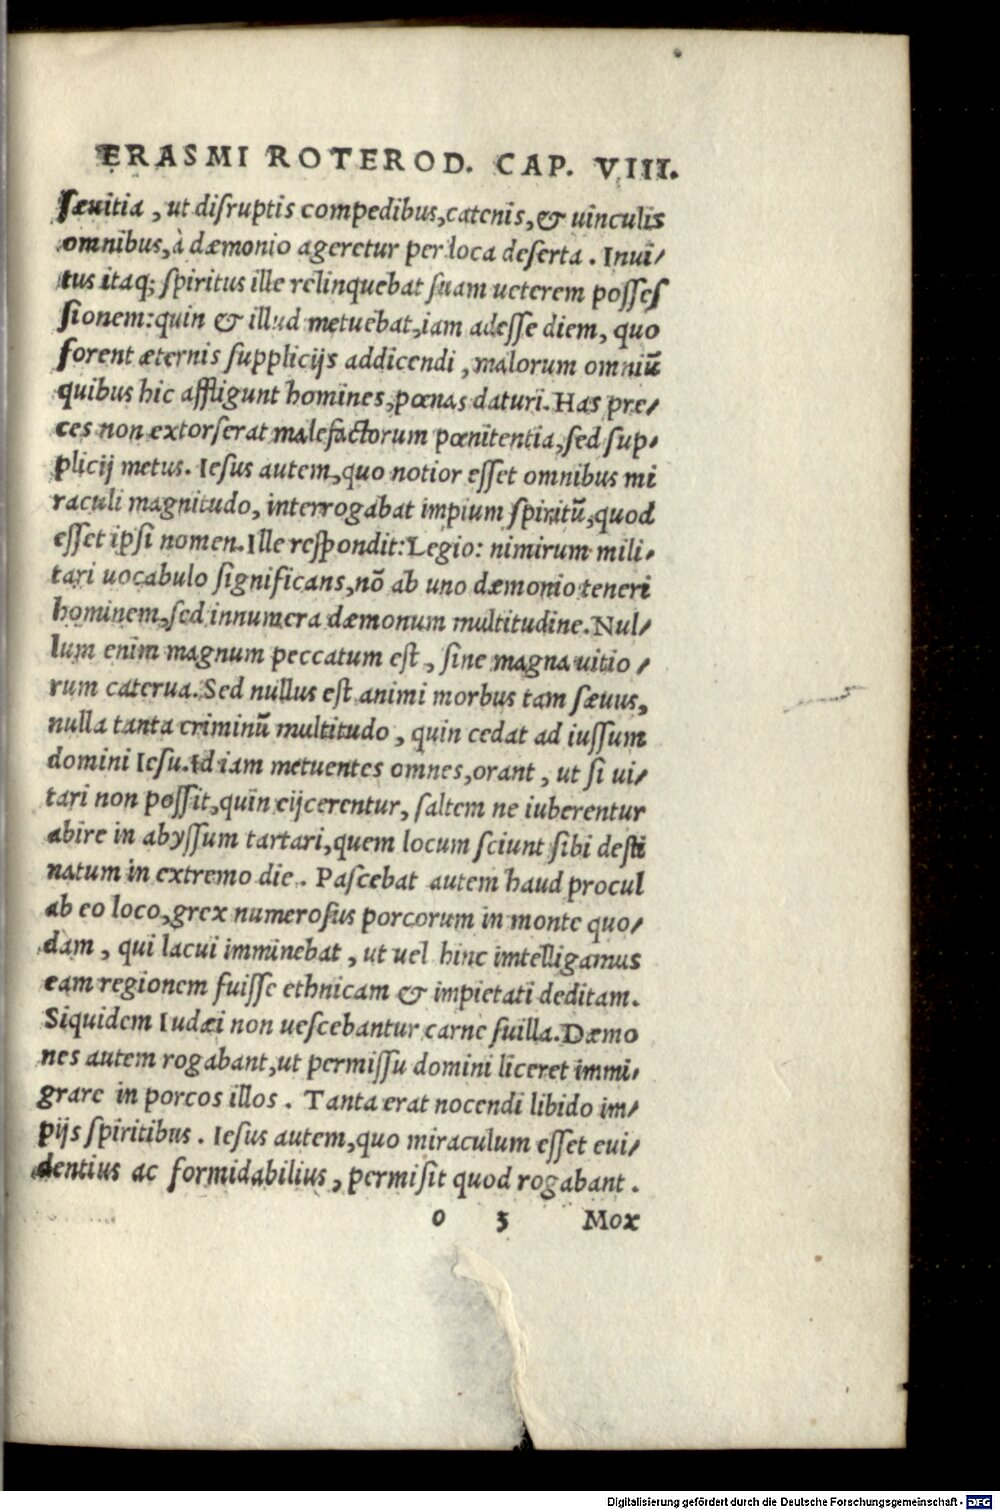 ERASMI ROTEROD. CAP. VIII.
sæuitia, ut disruptis compedibus, catenis, & uinculis
omnibus, à dæmonio ageretur per loca deserta. Inui/
tus itaq; spiritus ille relinquebat suam ueterem posses
sionem: quin & illud metuebat, iam adesse diem, quo
forent æternis supplicijs addicendi, malorum omniū
quibus hic affligunt homines, pœnas daturi. Has pre/
ces non extorserat malefactorum pœnitentia, sed sup/
plicij metus. Iesus autem, quo notior esset omnibus mi
raculi magnitudo, interrogabat impium spiritū, quod
esset ipsi nomen. Ille respondit: Legio: nimirum mili/
tari uocabulo significans, nō ab uno dæmonio teneri
hominem, sed innumera dæmonum multitudine. Nul/
lum enim magnum peccatum est, sine magna uitio/
rum caterua. Sed nullus est animi morbus tam sæuus,
nulla tanta criminū multitudo, quin cedat ad iussum
domini Iesu. Id iam metuentes omnes, orant, ut si ui/
tari non possit, quin eijcerentur, saltem ne iuberentur
abire in abyssum tartari, quem locum sciunt sibi desti
natum in extremo die. Pascebat autem haud procul
ab eo loco, grex numerosus porcorum in monte quo/
dam, qui lacui imminebat, ut uel hinc imtelligamus
eam regionem fuisse ethnicam & impietati deditam.
Siquidem Iudæi non uescebantur carne suilla. Dæmo
nes autem rogabant, ut permissu domini liceret immi/
grare in porcos illos. Tanta erat nocendi libido im/
pijs spiritibus. Iesus autem, quo miraculum esset eui/
dentius ac formidabilius, permisit quod rogabant.
o 3 Mox
Digitalisierung gefördert durch die Deutsche Forschungsgemeinschaft - DFG